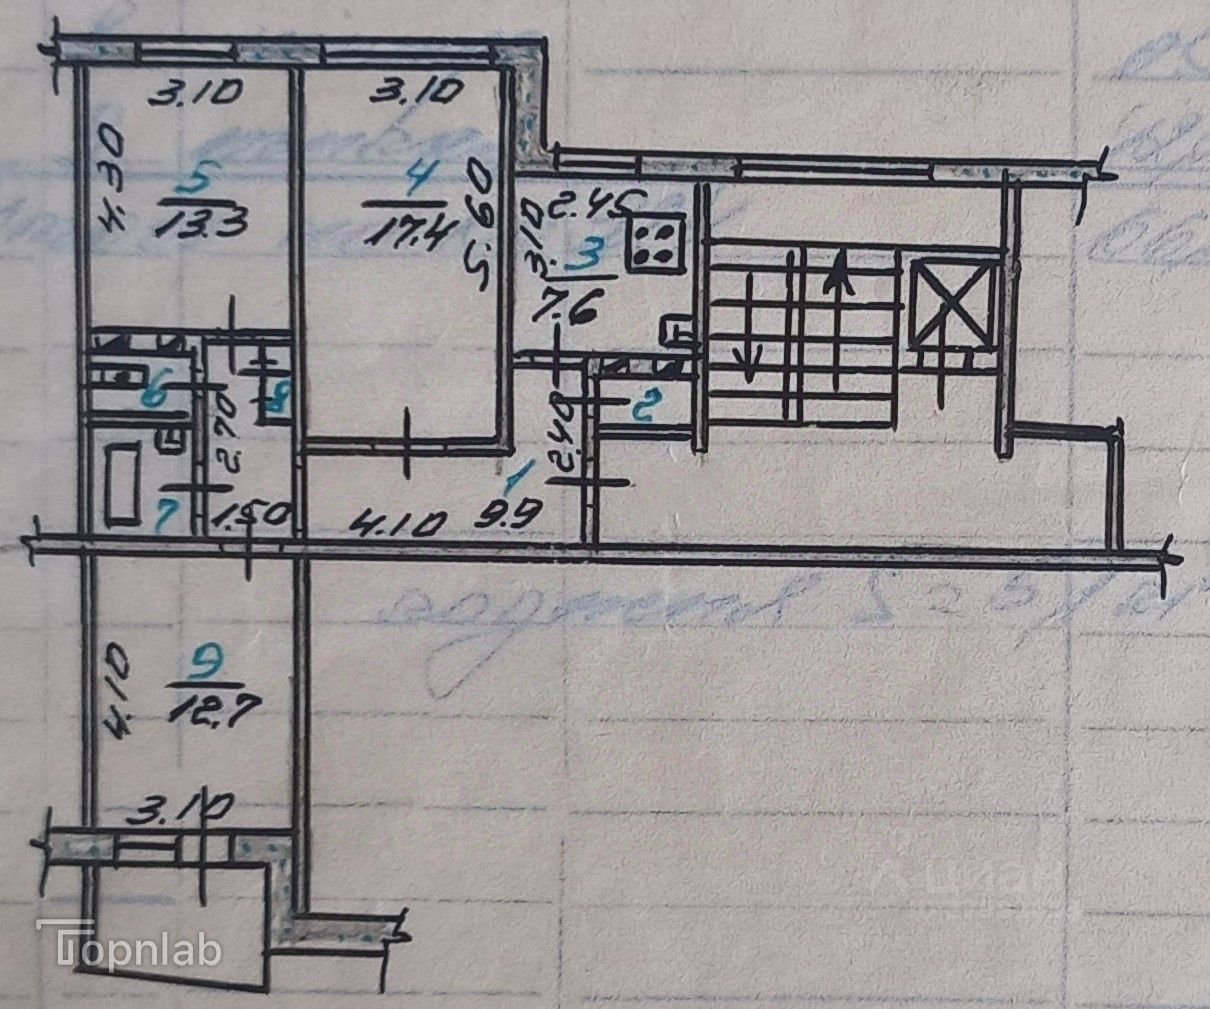 3.10
3.10
4.30
5
13.3
4
17.4
5.60
2.45
3.10
3
7.6
6
8
2
2.70
2.40
7
1.50
4.10
1
9.9
4.10
9
12.7
3.10
Topnlab
Циан